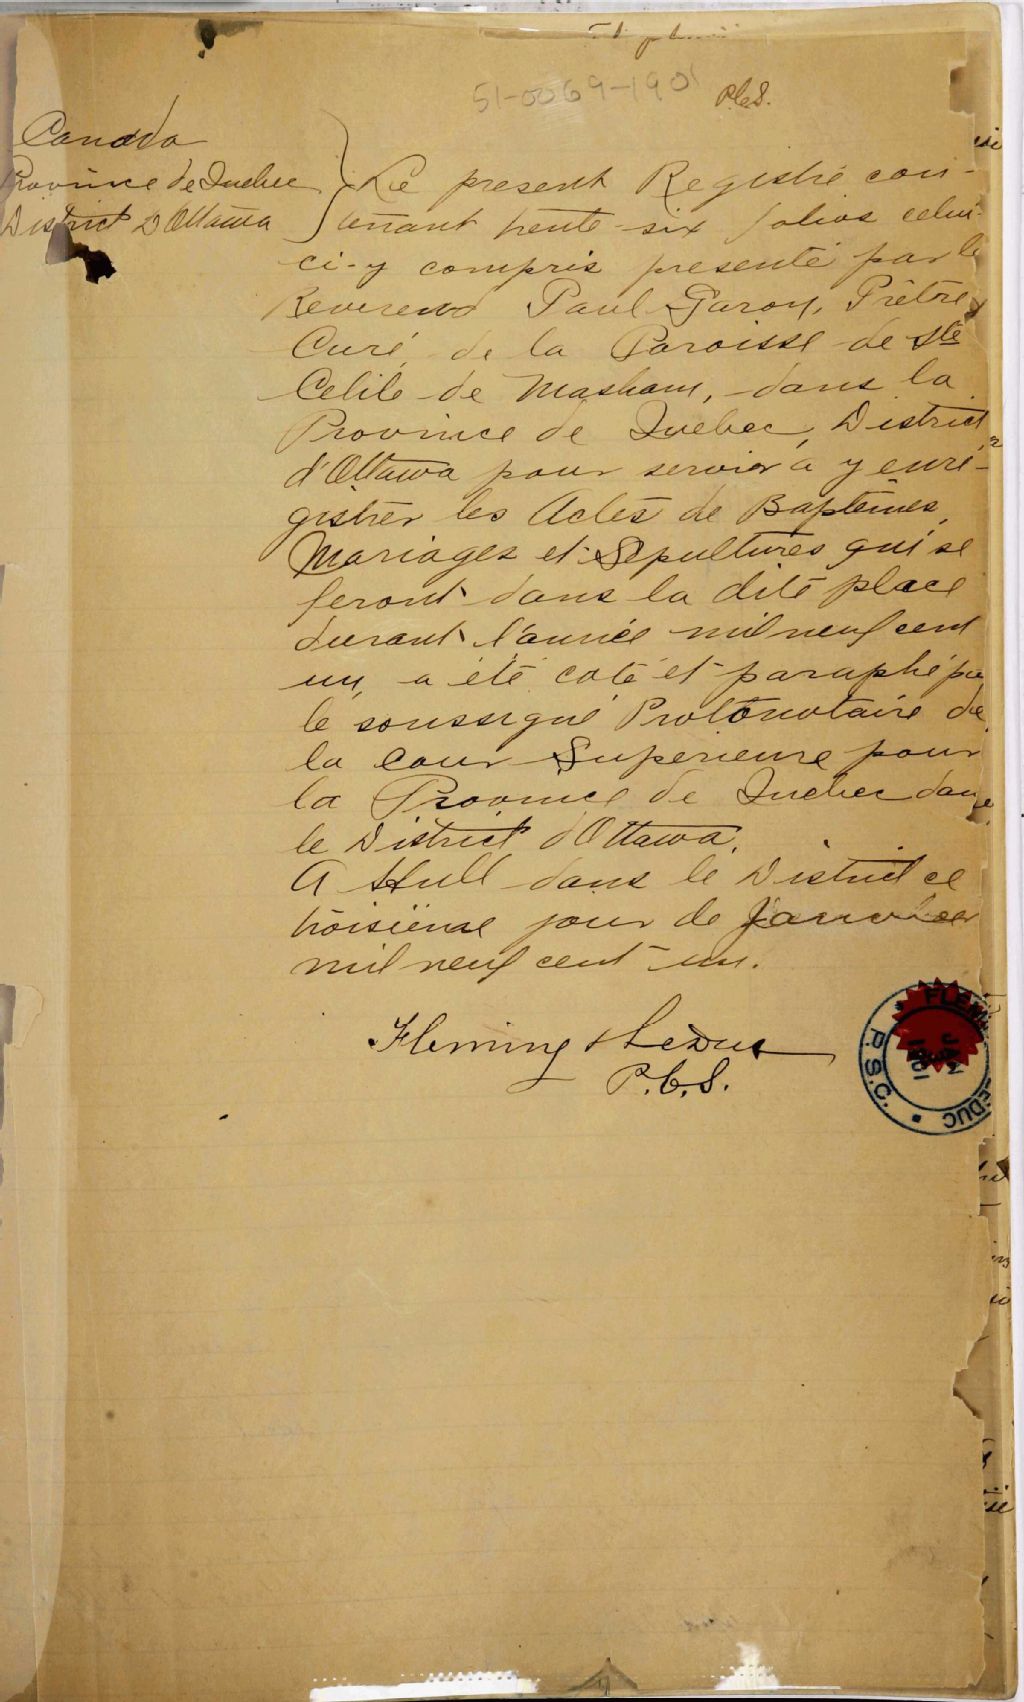 51-0069-1901
P.C.S.
Canada
Province de Quebec
District D'Ottawa
Le present Registre con-
tenant trente-six folios celui-
ci-y compris presenté par le
Reverend Paul Garon, Prêtre,
Curé, de la Paroisse de Ste
Celile de Masham, dans la
Province de Quebec, District
d'Ottawa pour servir a y enre-
gistrer les Actes de Baptêmes,
Mariages et Sepultures qui se
feront dans la dite place
durant l'année mil neuf cent
un, a été coté et paraphé par
le soussigné Protonotaire de
la Cour Superieure pour
la Province de Quebec dans
le District d'Ottawa.
A Hull dans le District ce
troisième jour de Janvier
mil neuf cent-un.
Fleming & Leduc
P.C.S.
FLEM
LEDUC
P.S.C.
JAN
1901